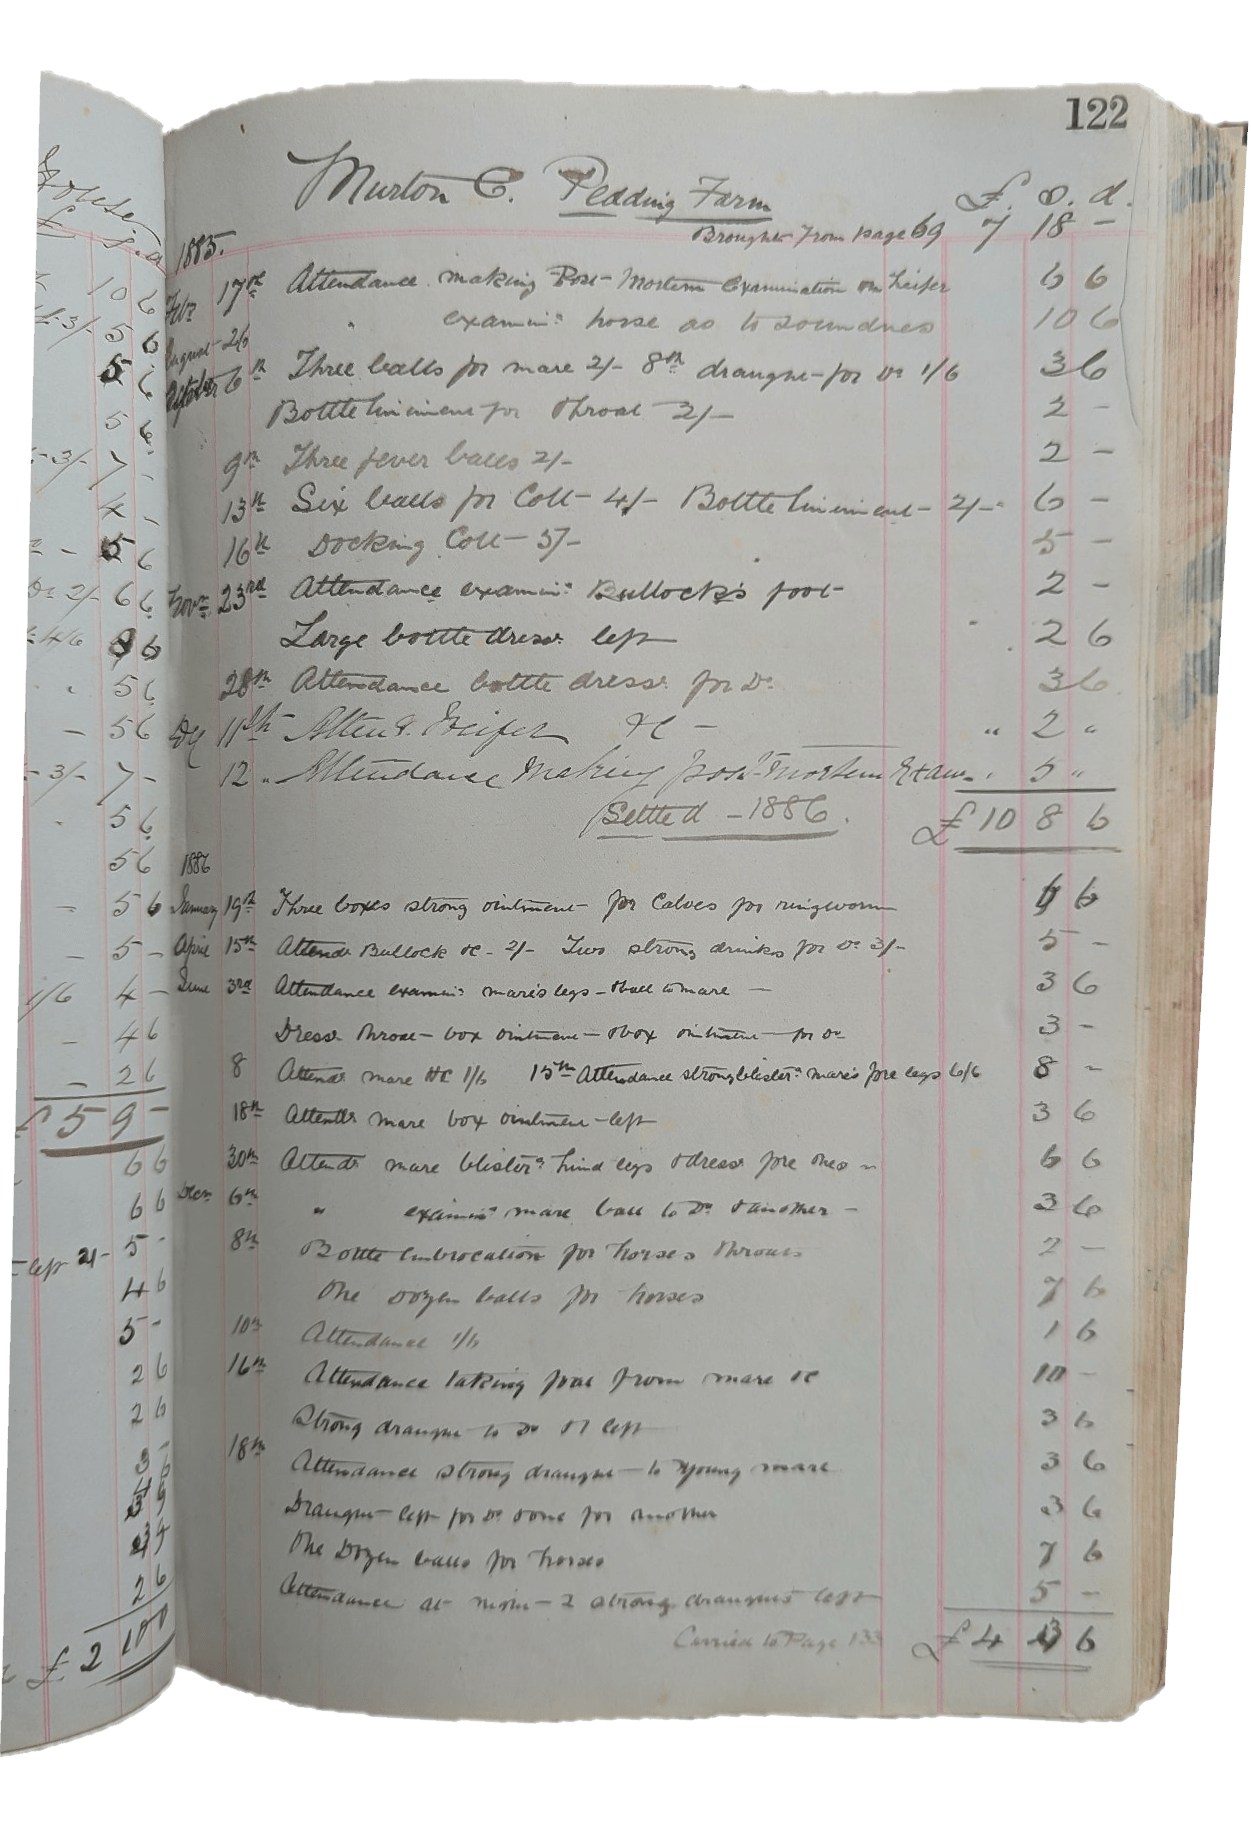 122
Murton C. Pedding Farm £. s. d.
Brought from page 69 7 18 -
1885.
Feb 17th Attendance making Post-Mortem Examination on heifer 6 6
August 26 " examin: horse as to soundness 10 6
October 6th Three balls for mare 2/- 8th draught for Do 1/6 3 6
Bottle liniment for throat 2/- 2 -
9th Three fever balls 2/- 2 -
13th Six balls for Colt 4/- Bottle liniment - 2/- 6 -
16th Docking Colt - 5/- 5 -
Novr 23rd Attendance examin: Bullock's foot 2 -
Large bottle dressg left 2 6
28th Attendance bottle dressg for Do 3 6
11th Attend. Heifer &c - " 2 "
12 " Attendance Making post-mortem Exam. " 5 "
Settled - 1886. £10 8 6
1886
January 19th Three boxes strong ointment for Calves for ringworm 4 6
April 15th Attendg Bullock &c - 2/- Two strong drinks for Do 3/- 5 -
June 3rd Attendance examin: mare's legs - & ball to mare - 3 6
Dressg throat - box ointment - & box ointment - for Do 3 -
8 Attendg mare &c 1/6 15th Attendance strong blisterg mare's fore legs 6/6 8 -
18th Attendg mare box ointment - left 3 6
30th Attendg mare blisterg hind legs & dressg fore ones " 6 6
Decr 6th " examing mare ball to Do & another - 3 6
8th Bottle Embrocation for horses throats 2 -
One dozen balls for horses 7 6
10th Attendance 1/6 1 6
16th Attendance taking foal from mare &c 10 -
Strong draught to Do & 1 left 3 6
18th Attendance strong draught - to young mare 3 6
Draught left for Do & one for another 3 6
One Dozen balls for horses 7 6
Attendance at night - 2 strong draughts left 5 -
Carried to Page 133 £4 3 6
House.
£ s. d
10 6
3/- 5 6
5 6
5 6
3/- 7 -
4 -
5 6
Do 2/- 6 6
4/6 9 6
5 6
- 5 6
- 3/- 7 -
5 6
5 6
- 5 6
- 5 -
1/6 4 -
- 4 6
- 2 6
£ 5 9 -
6 6
6 6
left 2/- 5 -
4 6
5 -
2 6
2 6
2 6
£ 2 10 0